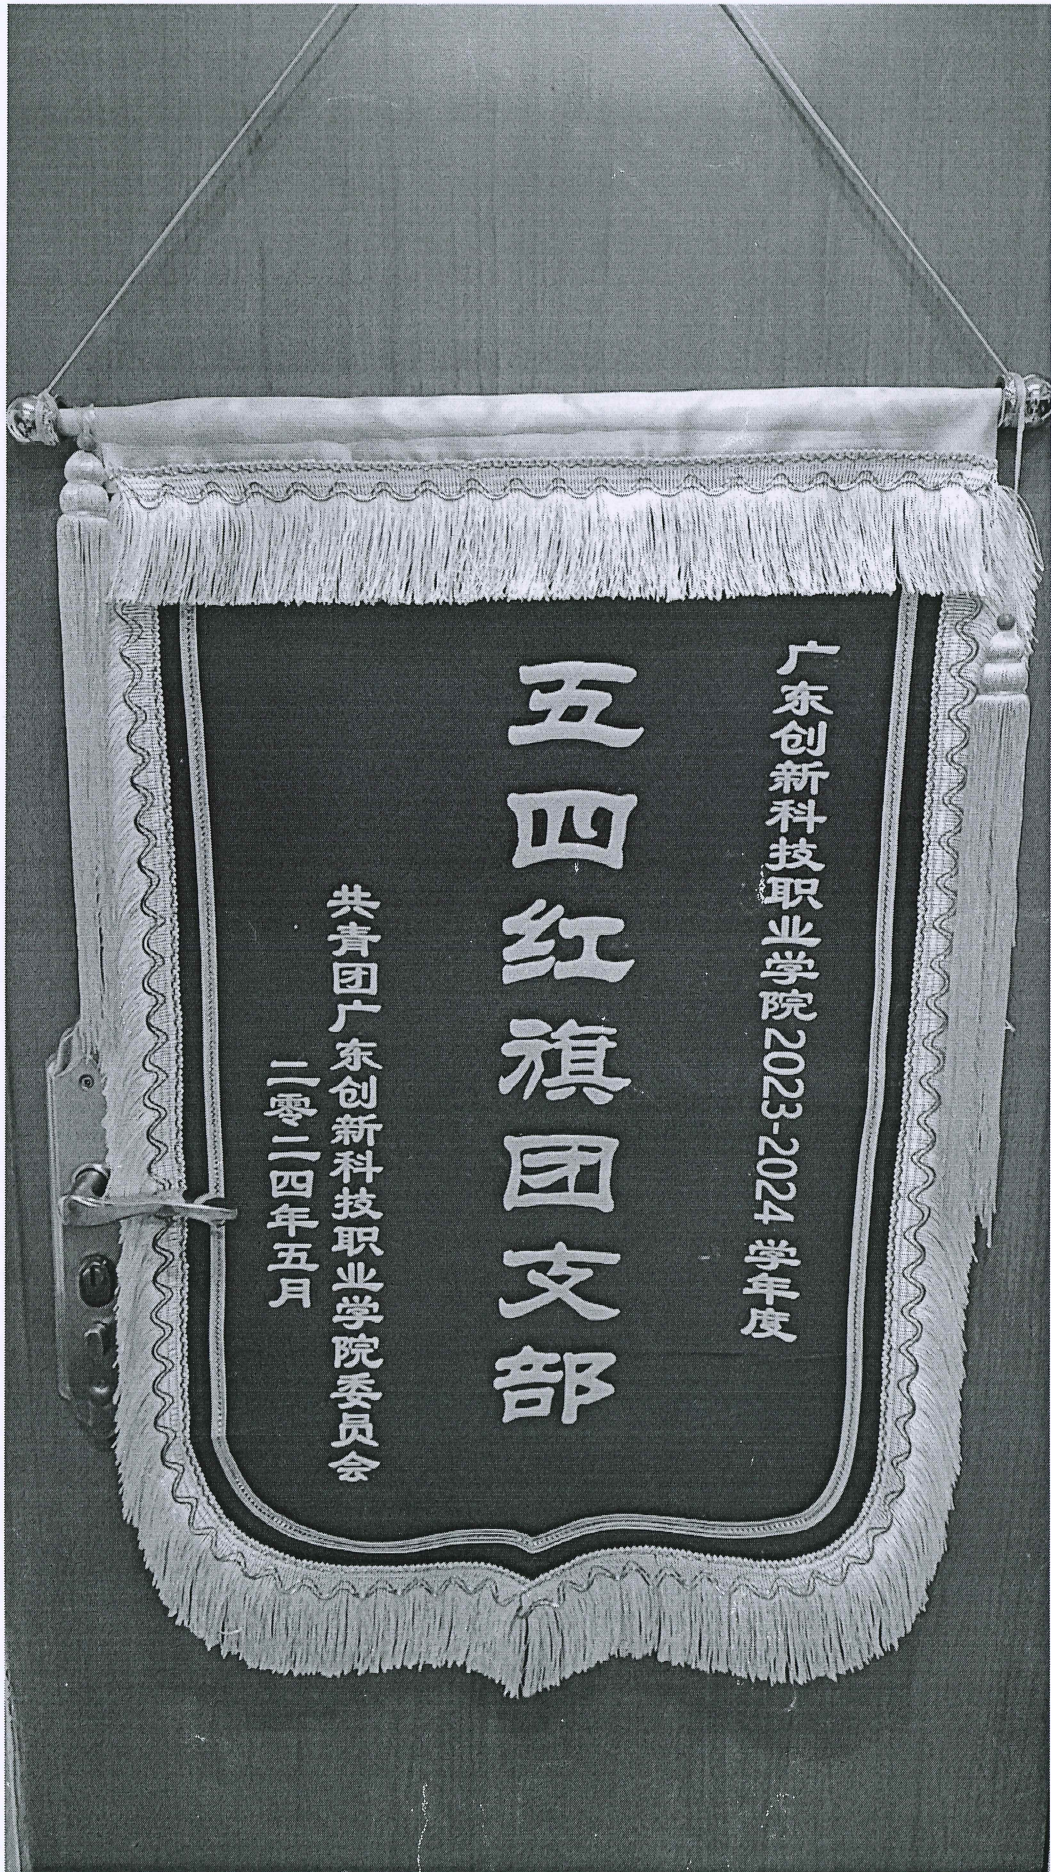 广东创新科技职业学院2023-2024学年度
五四红旗团支部
共青团广东创新科技职业学院委员会
二零二四年五月